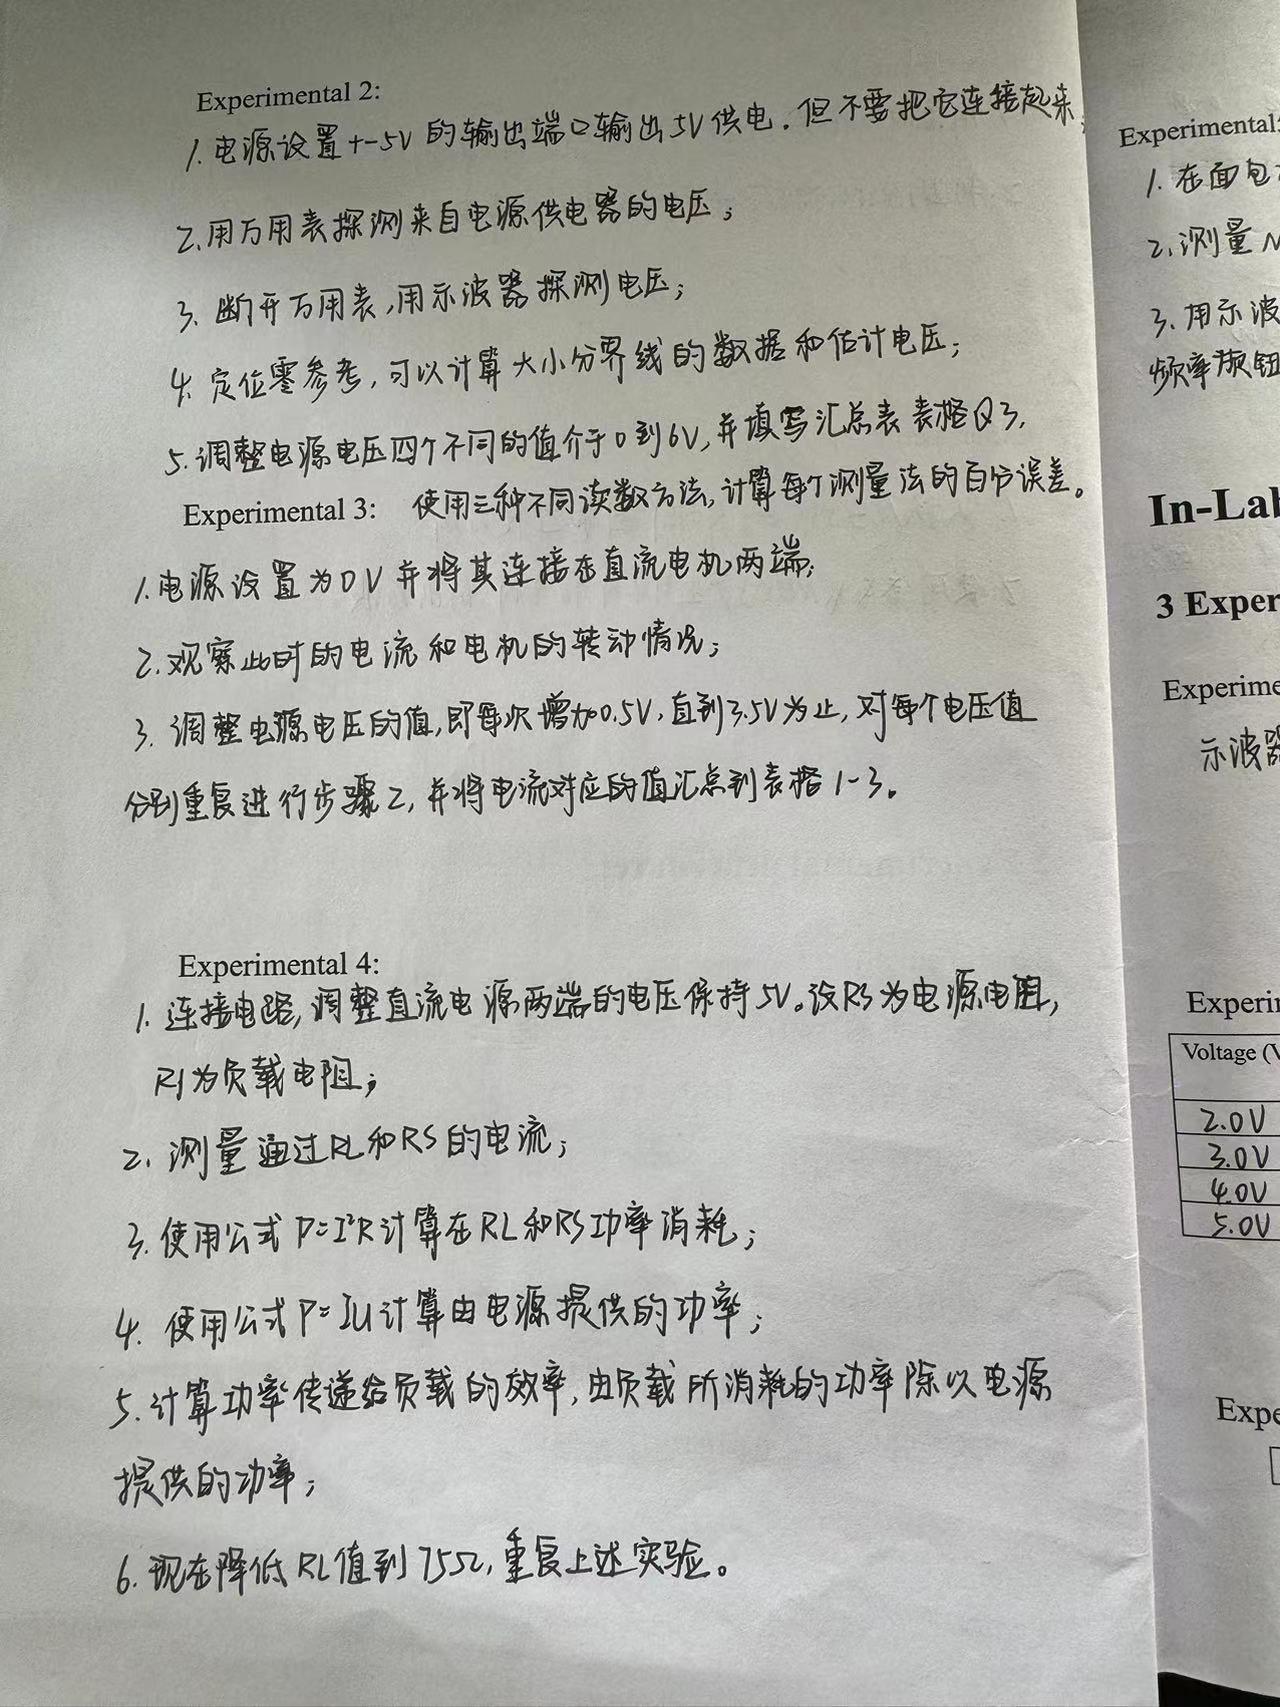 Experimental 2:
1. 电源设置+-5V的输出端口输出5V供电.但不要把它连接起来;
2.用万用表探测来自电源供电器的电压;
3. 断开万用表,用示波器探测电压;
4. 定位零参考,可以计算大小分界线的数据和估计电压;
5.调整电源电压四个不同的值介于0到6V,并填写汇总表表格Q3,
Experimental 3: 使用三种不同读数方法,计算每个测量法的百分误差。
1.电源设置为0V并将其连接在直流电机两端;
2.观察此时的电流和电机的转动情况;
3. 调整电源电压的值,即每次增加0.5V,直到3.5V为止,对每个电压值
分别重复进行步骤2,并将电流对应的值汇总到表格1-3。
Experimental 4:
1. 连接电路,调整直流电源两端的电压保持5V。设RS为电源电阻,
Rl为负载电阻;
2. 测量通过RL和RS的电流;
3. 使用公式P=I²R计算在RL和RS功率消耗;
4. 使用公式P=IU计算由电源提供的功率;
5.计算功率传递给负载的效率,由负载所消耗的功率除以电源
提供的功率;
6.现在降低RL值到75Ω,重复上述实验。
Experimental
1.在面包
2.测量
3.用示波
频率旋钮
In-Lab
3 Exper
Experime
示波器
Experi
Voltage (V
2.0V
3.0V
4.0V
5.0V
Expe